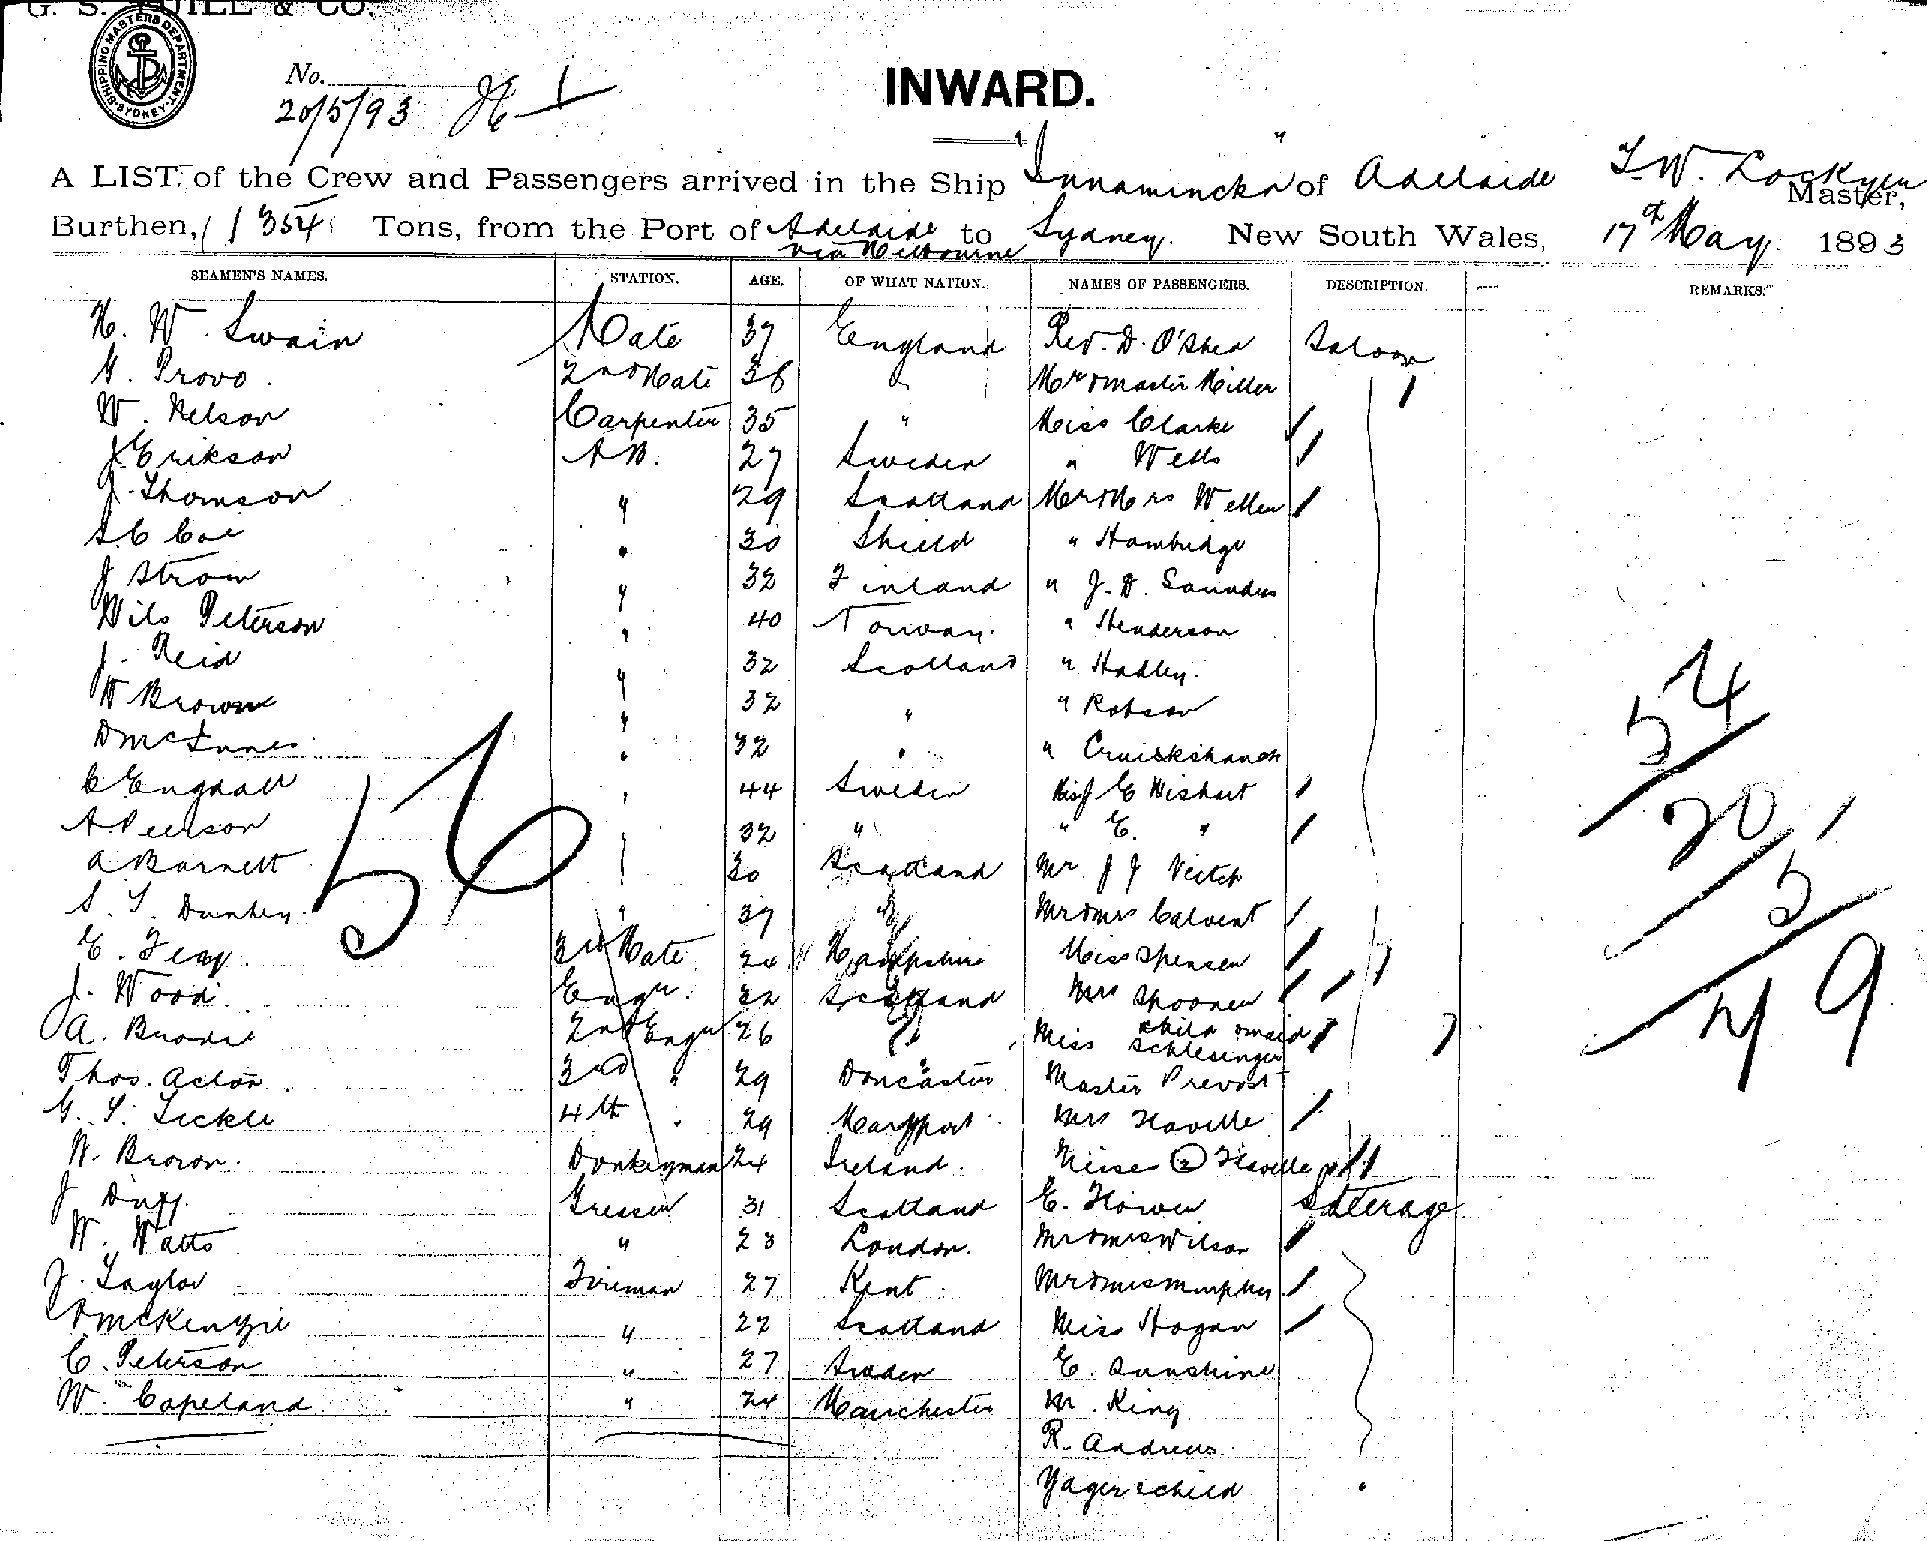 G. S. YUILL & CO.
SHIPPING MASTERS DEPARTMENT SYDNEY
No.
20/5/93
INWARD.
A LIST of the Crew and Passengers arrived in the Ship "Innamincka" of Adelaide T. W. Lockyer Master,
Burthen, 1354 Tons, from the Port of Adelaide via Melbourne to Sydney. New South Wales, 17th May 1893
SEAMEN'S NAMES. STATION. AGE. OF WHAT NATION. NAMES OF PASSENGERS. DESCRIPTION. REMARKS.
H. W. Swain Mate 37 England Rev. D. O'Shea Saloon
G. Provo 2nd Mate 36 " Mr & Master Miller
W. Nelson Carpenter 35 " Miss Clarke
J Erikson A B. 27 Sweden " Wells
J. Thomson " 29 Scotland Mr & Mrs Weller
S C Coe " 30 Shield " Hambidge
J Strom " 32 Finland " J. D. Saunders
Nils Peterson " 40 Norway " Henderson
J. Reid " 32 Scotland " Hadley
W Brown " 32 " " Robson
D McInnes " 32 " " Cruickshank
C Engdall " 44 Sweden Miss E Wishart
A Peerson " 32 " " E. "
A Barnett " 30 Scotland Mr J J Veitch
S. T. Dunkey " 37 " Mr & Mrs Calvert
E. Feay 3rd Mate 24 Hampshire Miss Spensen
J. Wood Engr. 32 Scotland Mrs Spooner
child & maid
A. Brodie 2nd Engr 26 " Miss Schlesinger
Thos. Acton 3rd " 29 Doncaster Master Prevost
G. T. Tickle 4th " 29 Maryport Mrs Flavelle
W. Brown Donkeyman 24 Ireland Misses (2) Flavelle
J Duff Greaser 31 Scotland E. Flower Steerage
W. Watts " 23 London Mr & Mrs Wilson
J. Taylor Fireman 27 Kent Mr & Mrs Murphy
D McKenzie " 22 Scotland Miss Hogan
C. Peterson " 27 Sweden E. Sunshine
W. Copeland " 24 Manchester M. King
R. Andrews
Yager & child
56
54
20
5
79